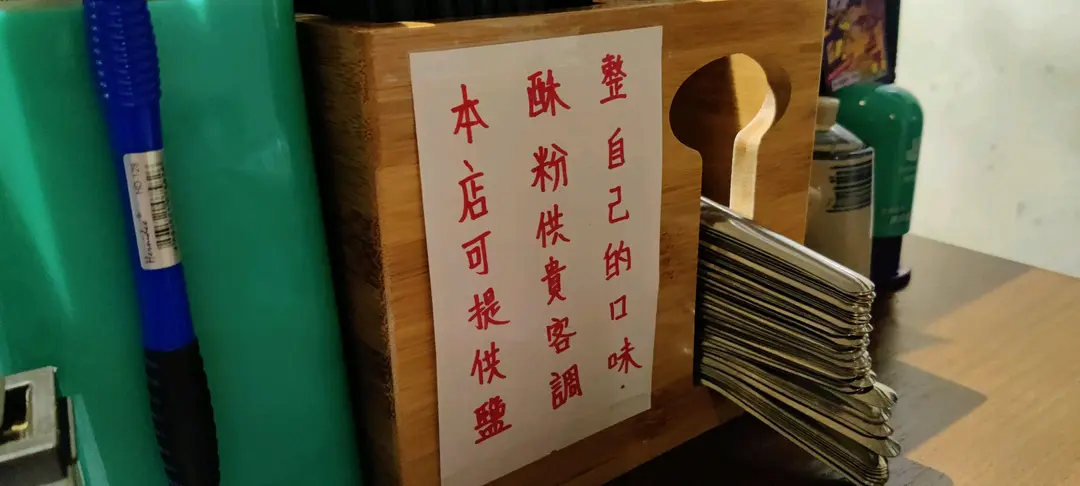 本店可提供鹽
酥粉供貴客調
整自己的口味.